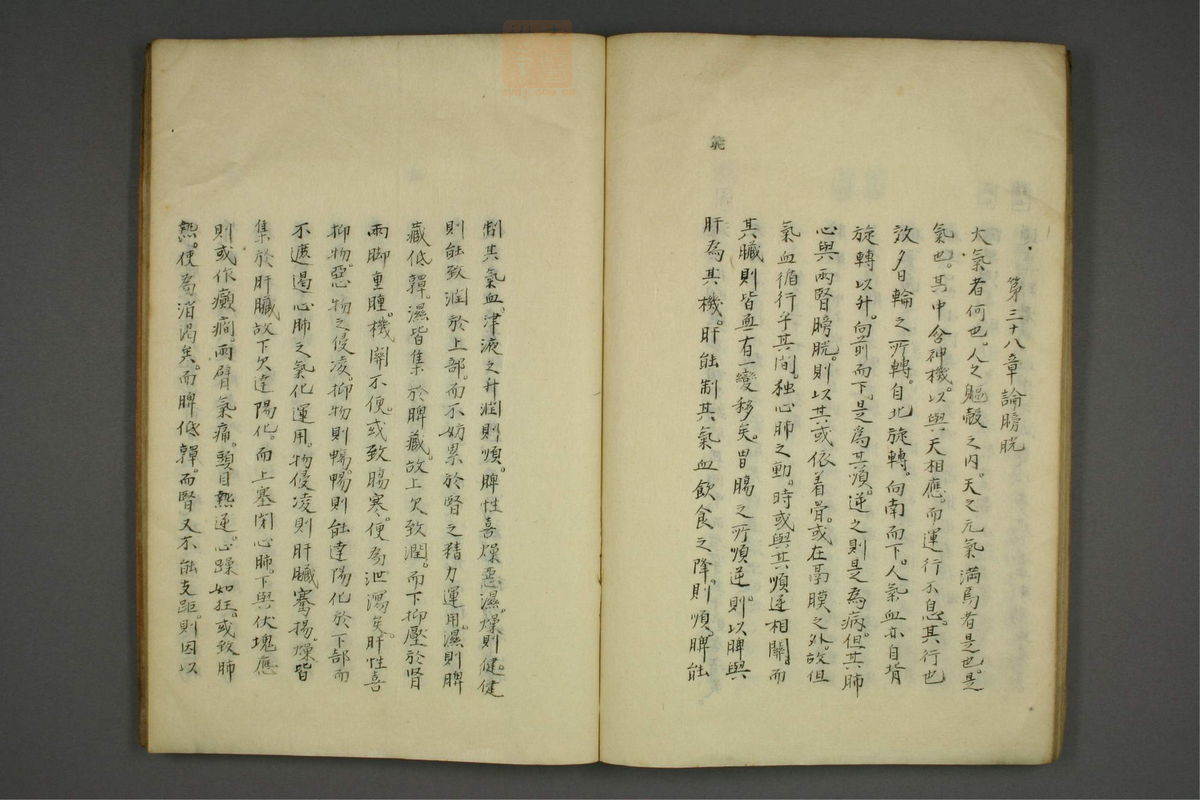 第三十八章論膀胱
大氣者何也。人之軀殼之内。天之元氣滿焉者是也。是
氣也。其中含神機。以與天相應。而運行不息。其行也
效夕日輪之所轉。自北旋轉。向南而下。人氣血亦自背
旋轉以升。向前而下。是為其順。逆之則是為病。但其肺
心與兩腎膀胱。則以其或依着骨。或在鬲膜之外。故但
氣血循行乎其間。独心肺之動。時或與其順逆相關。而
其臟則皆無有一變移矣。胃腸之所順逆。則以脾與
肝為其機。肝能制其氣血飲食之降。則順。脾能
制其氣血。津液之升潤則順。脾性喜燥惡濕。燥則健。健
則能致潤於上部。而不妨累於腎之精力運用。濕則脾
藏低嚲。濕皆集於脾藏。故上欠致潤。而下抑壓於腎
兩脚重腫。機關不便。或致腸寒。便為泄瀉矣。肝性喜
抑物。惡物之侵凌。抑物則暢。暢則能達陽化於下部而
不遮遏心肺之氣化運用。物侵凌則肝臟騫揚。燥皆
集於肝臟。故下欠達陽化。而上塞閉心肺。下與伏塊應
則或作癲癇。兩臂氣痛。頭目熱逆。心躁如狂。或致肺
熱。便為消渴矣。而脾低嚲。而腎又不能支距。則因以